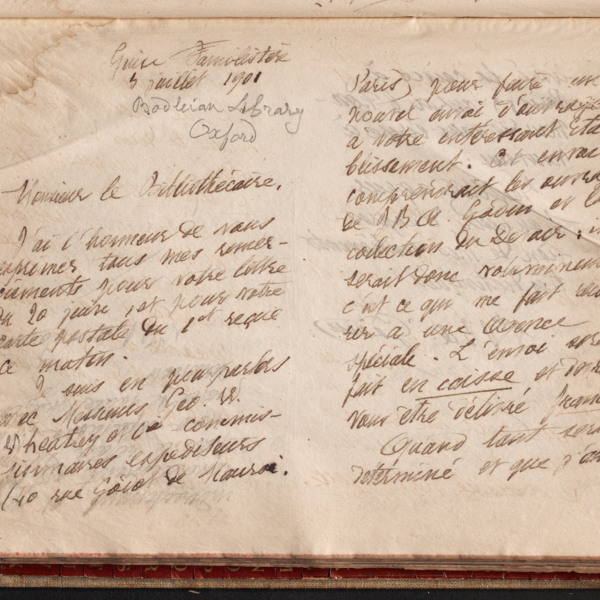 Guise Familistère
3 juillet 1901
Bodleian Library
Oxford
Monsieur le Bibliothécaire,
J'ai l'honneur de vous
exprimer tous mes remer-
ciments pour votre lettre
du 20 juin, et pour votre
carte postale du 1er reçue
ce matin.
Je suis en pourparlers
avec Messieurs Geo. W.
Wheatley & Co commis-
sionnaires expéditeurs
rue de Mauroi.
Paris, pour faire un
nouvel envoi d'ouvrages
à votre intéressant éta-
blissement. Cet envoi
comprendrait les œuvres
de J.B.A. Godin et la
collection du Devoir; il
serait donc volumineux
c'est ce qui me fait
à une agence
spéciale. L'envoi
fait en caisse et
vous être délivré franco
Quand tout sera
déterminé et que j'au